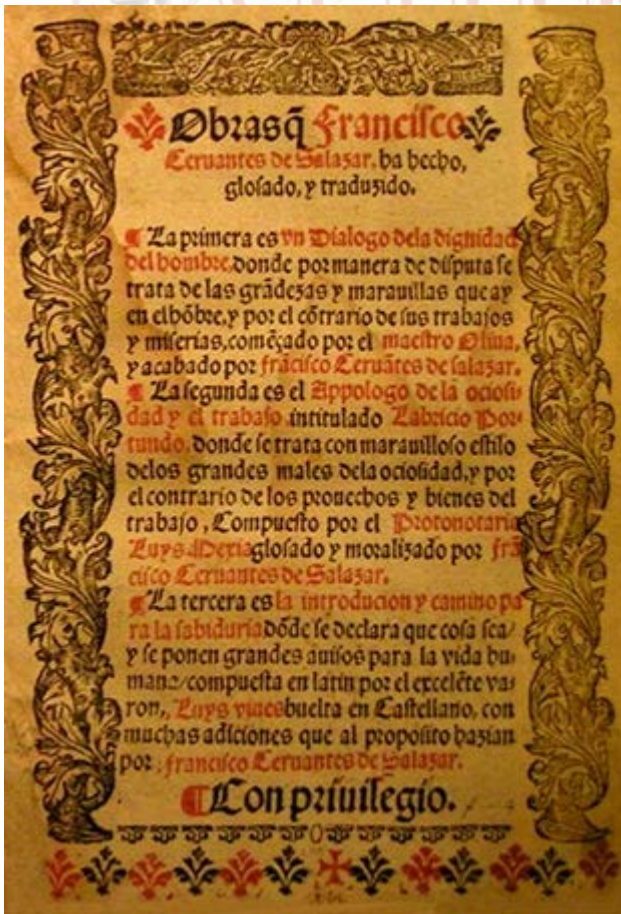 Obras q̃ Francisco
Ceruantes de Salazar, ha hecho,
glosado, y traduzido.
¶ La primera es vn Dialogo dela dignidad
del hombre, donde por manera de disputa se
trata de las grãdezas y marauillas que ay
en el hõbre, y por el cõtrario de sus trabajos
y miserias, comẽçado por el maestro Oliua,
y acabado por frãcisco Ceruãtes de salazar.
¶ La segunda es el Appologo de la ociosi-
dad y el trabajo, intitulado Labricio Por-
tundo, donde se trata con marauilloso estilo
delos grandes males dela ociosidad, y por
el contrario de los prouechos y bienes del
trabajo, Compuesto por el Protonotario
Luys Mexia glosado y moralizado por frã
cisco Ceruantes de Salazar.
¶ La tercera es la introducion y camino pa
ra la sabiduria dõde se declara que cosa sea/
y se ponen grandes auisos para la vida hu-
mana/ compuesta en latin por el excelẽte va-
ron, Luys viues buelta en Castellano, con
muchas adiciones que al proposito hazian
por francisco Ceruantes de Salazar.
¶ Con priuilegio.